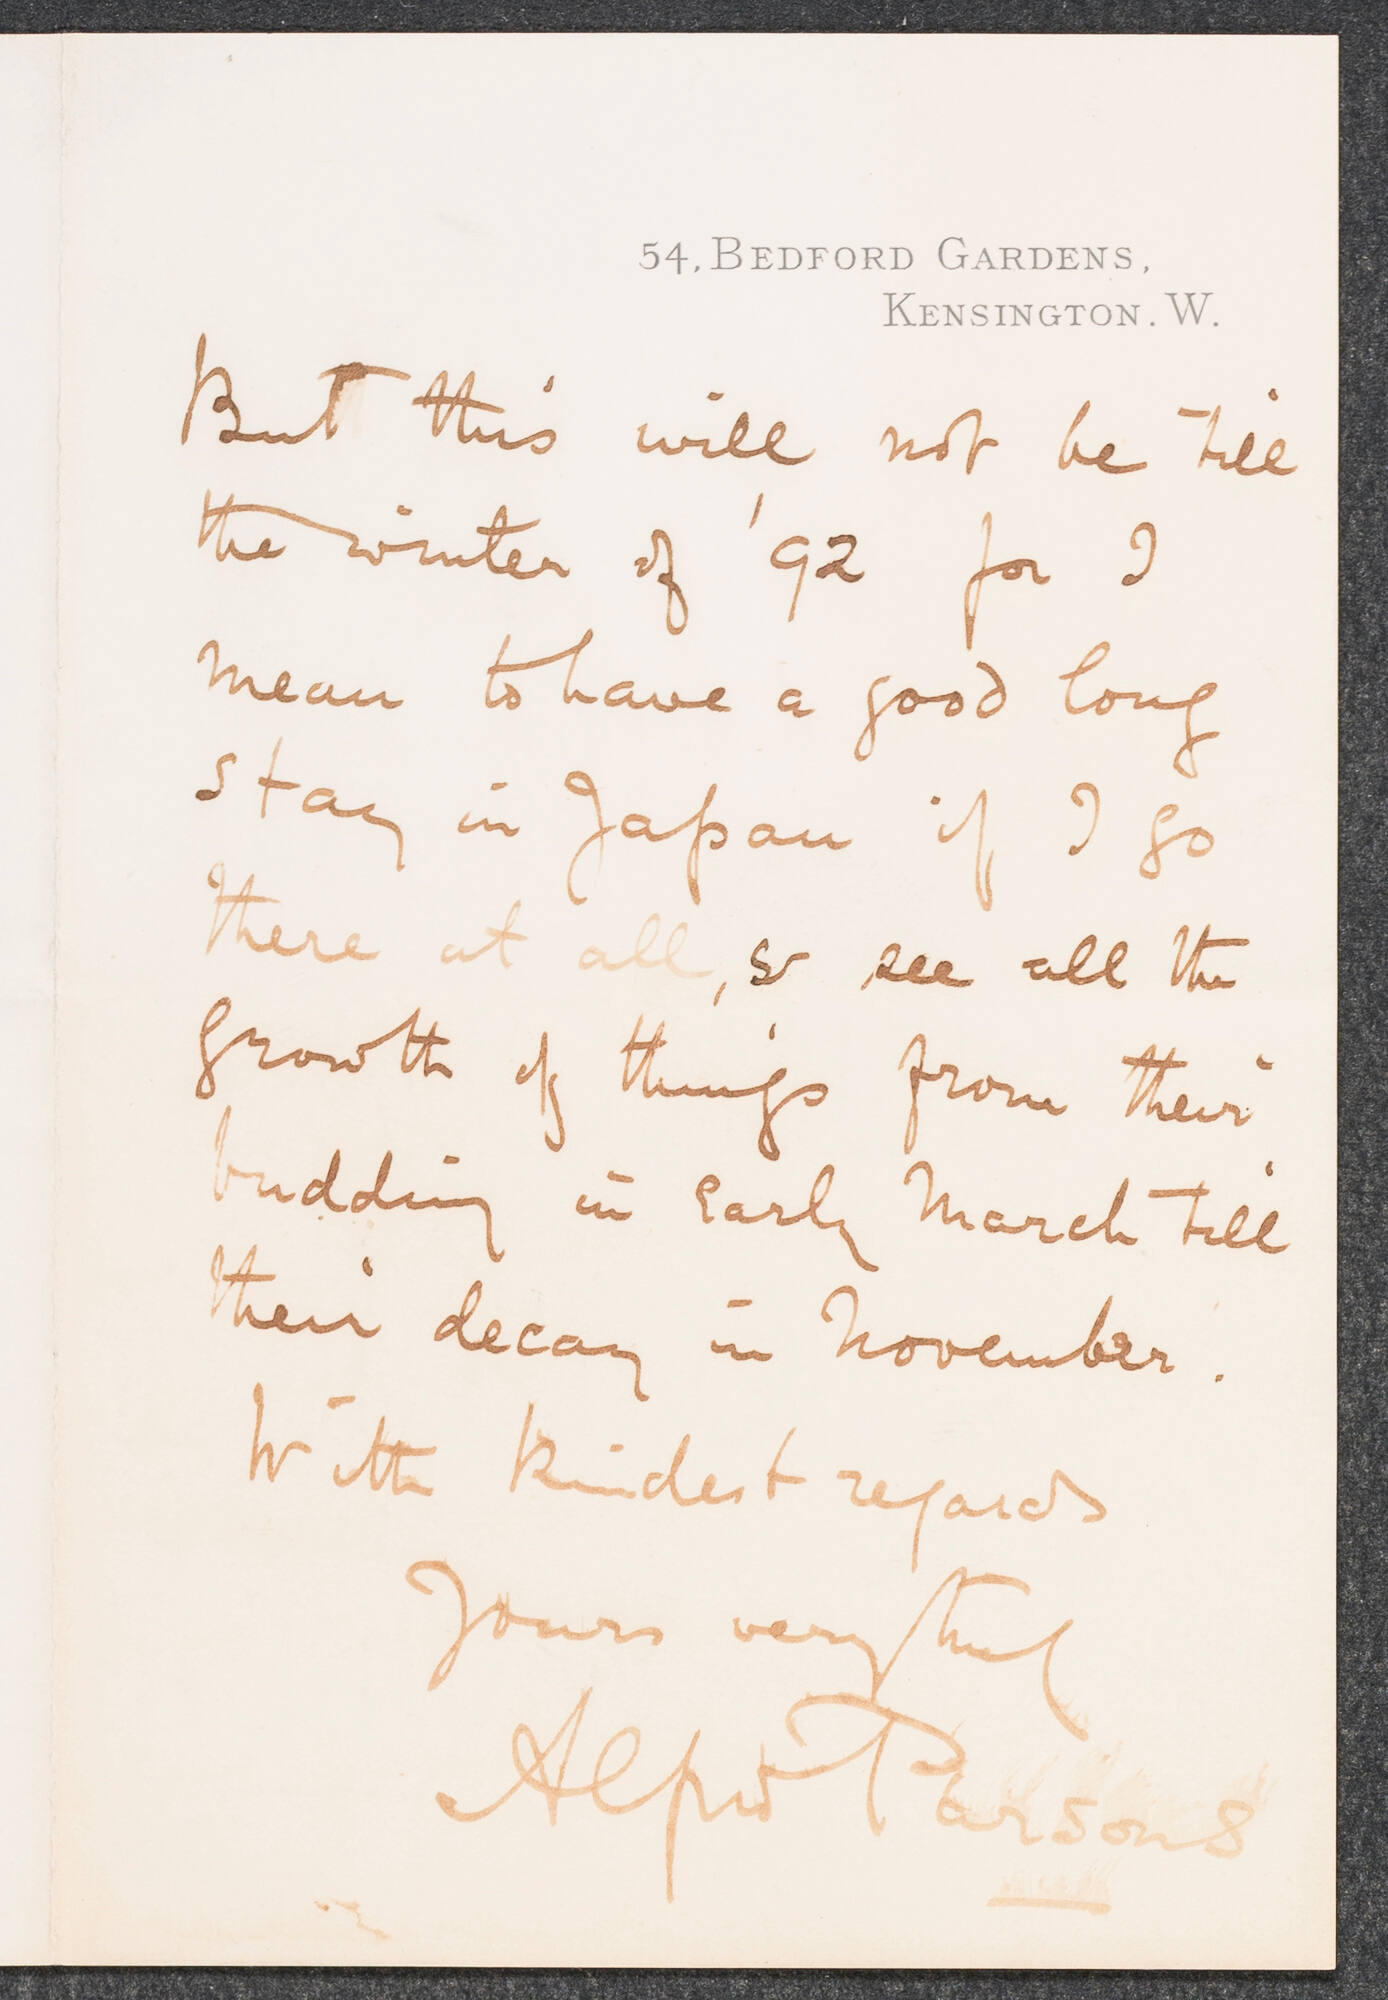 54, BEDFORD GARDENS,
KENSINGTON. W.
But this will not be till
the winter of '92 for I
mean to have a good long
stay in Japan if I go
there at all, & see all the
growth of things from their
budding in early March till
their decay in November.
With kindest regards
Yours very truly
Alfred Parsons